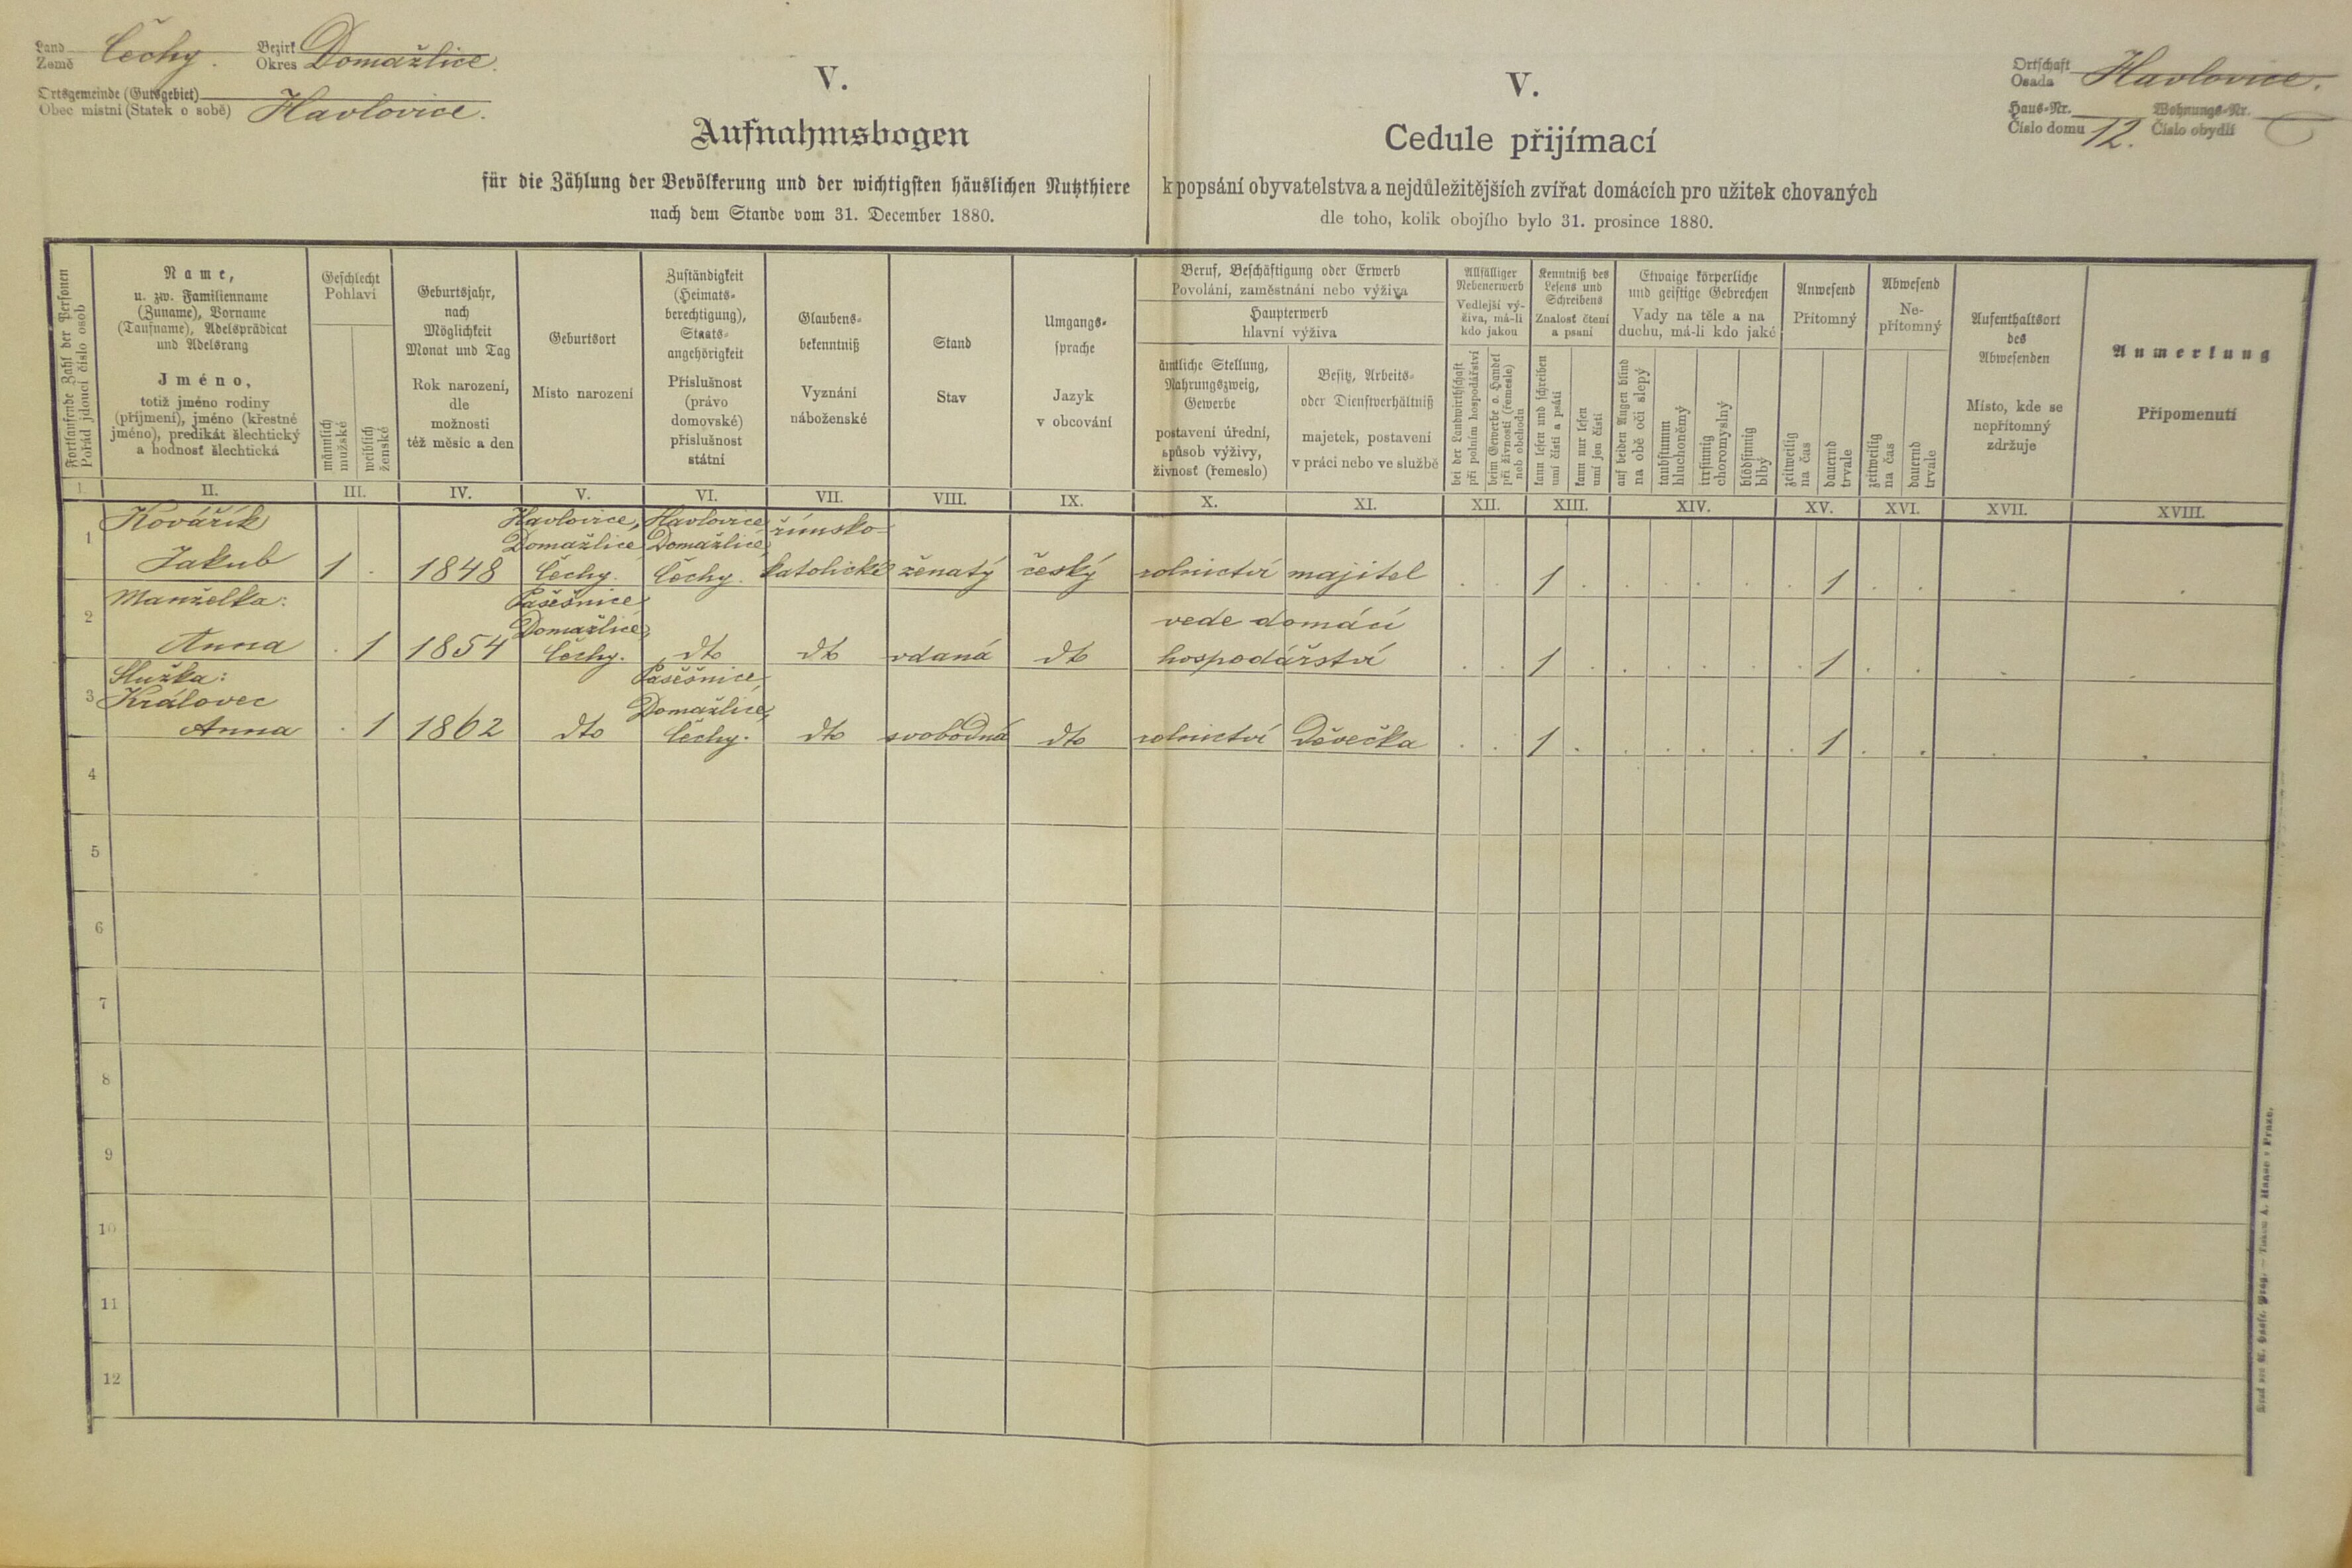 Land
Země Čechy.
Bezirk
Okres Domažlice.
Ortsgemeinde (Gutsgebiet)
Obec místní (Statek o sobě) Havlovice.
V.
Aufnahmsbogen
für die Zählung der Bevölkerung und der wichtigsten häuslichen Nutzthiere
nach dem Stande vom 31. December 1880.
V.
Cedule přijímací
k popsání obyvatelstva a nejdůležitějších zvířat domácích pro užitek chovaných
dle toho, kolik obojího bylo 31. prosince 1880.
Ortschaft
Osada Havlovice.
Haus-Nr.
Číslo domu 12.
Wohnungs-Nr.
Číslo obydlí
Fortlaufende Zahl der Personen
Pořád jdoucí číslo osob
Name,
u. zw. Familienname
(Zuname), Vorname
(Taufname), Adelsprädicat
und Adelsrang
Jméno,
totiž jméno rodiny
(příjmení), jméno (křestné
jméno), predikát šlechtický
a hodnosť šlechtická
Geschlecht
Pohlaví
männlich
mužské
weiblich
ženské
Geburtsjahr,
nach
Möglichkeit
Monat und Tag
Rok narození,
dle
možnosti
též měsíc a den
Geburtsort
Místo narození
Zuständigkeit
(Heimats-
berechtigung),
Staats-
angehörigkeit
Příslušnost
(právo
domovské)
příslušnost
státní
Glaubens-
bekenntniß
Vyznání
náboženské
Stand
Stav
Umgangs-
sprache
Jazyk
v obcování
Beruf, Beschäftigung oder Erwerb
Povolání, zaměstnání nebo výživa
Haupterwerb
hlavní výživa
ämtliche Stellung,
Nahrungszweig,
Gewerbe
postavení úřední,
spůsob výživy,
živnosť (řemeslo)
Besitz, Arbeits-
oder Dienstverhältniß
majetek, postavení
v práci nebo ve službě
Allfälliger
Nebenerwerb
Vedlejší vý-
živa, má-li
kdo jakou
bei der Landwirthschaft
při polním hospodářství
beim Gewerbe o. Handel
při živnosti (řemesle)
neb obchodu
Kenntniß des
Lesens und
Schreibens
Znalosť čtení
a psaní
kann lesen und schreiben
umí čísti a psáti
kann nur lesen
umí jen čísti
Etwaige körperliche
und geistige Gebrechen
Vady na těle a na
duchu, má-li kdo jaké
auf beiden Augen blind
na obě oči slepý
taubstumm
hluchoněmý
irrsinnig
choromyslný
blödsinnig
blbý
Anwesend
Přítomný
zeitweilig
na čas
dauernd
trvale
Abwesend
Ne-
přítomný
zeitweilig
na čas
dauernd
trvale
Aufenthaltsort
des
Abwesenden
Místo, kde se
nepřítomný
zdržuje
Anmerkung
Připomenutí
I. II. III. IV. V. VI. VII. VIII. IX. X. XI. XII. XIII. XIV. XV. XVI. XVII. XVIII.
Kovářík Havlovice, Havlovice římsko-
1 Domažlice Domažlice,
Jakub 1 . 1848 Čechy. Čechy. katolické ženatý český rolnictví majitel . . 1 . . . . . . 1 . . . .
Manželka: Pašešnice
2 Domažlice, vede domácí
Anna . 1 1854 Čechy. dto dto vdaná dto hospodářství . . 1 . . . . . . 1 . . . .
Služka: Pašešnice
3 Královec Domažlice,
Anna . 1 1862 dto Čechy. dto svobodná dto rolnictví Děvečka . . 1 . . . . . . 1 . . . .
4
5
6
7
8
9
10
11
12